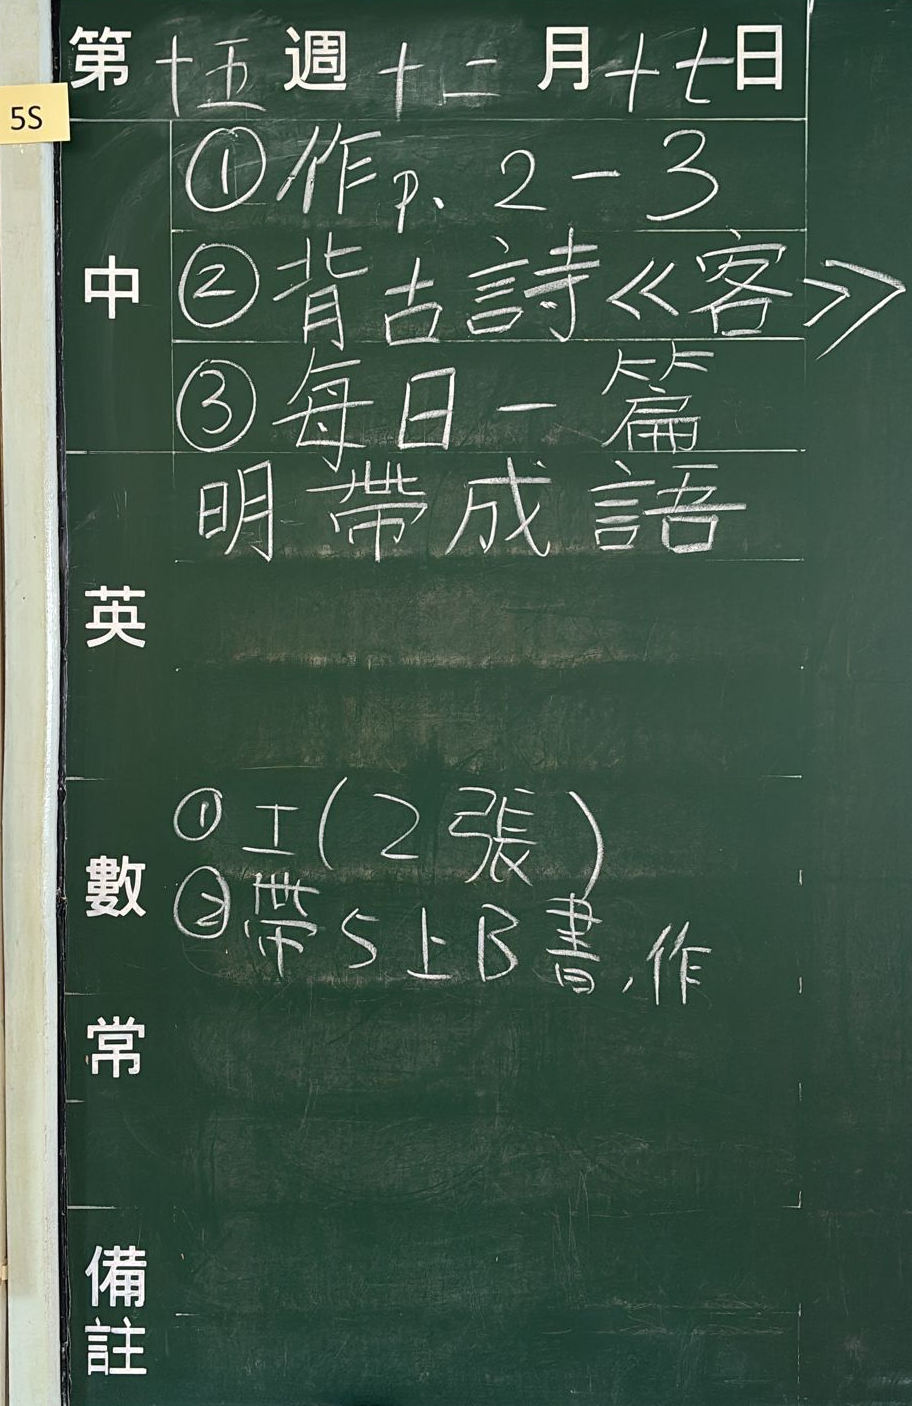 第十五週十二月十七日
5S
中
①作p. 2-3
②背古詩《客》
③每日一篇
明帶成語
英
數
①工(2張)
②帶5上B書,作
常
備註